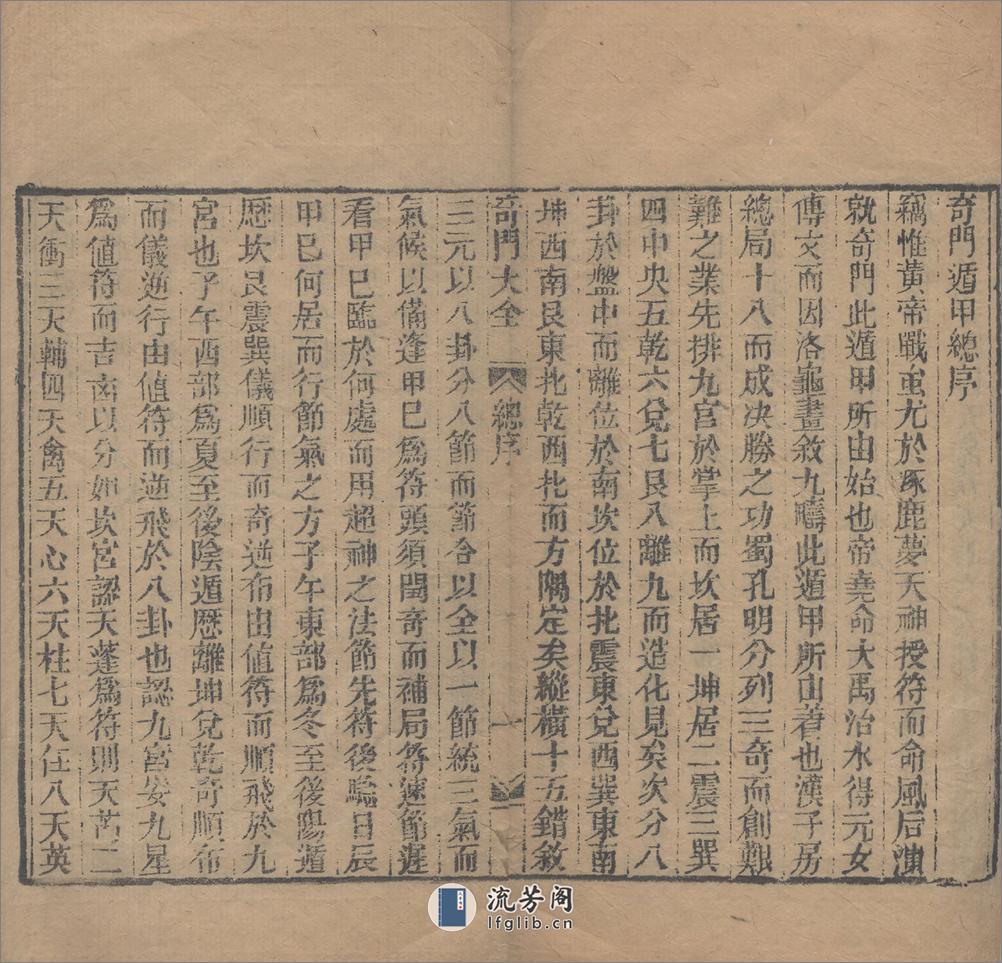 奇門遁甲總序
竊惟黃帝戰蚩尤於涿鹿夢天神授符而命風后演
就奇門此遁甲所由始也帝堯命大禹治水得元女
傳文而因洛龜畫敘九疇此遁甲所由著也漢子房
總局十八而成決勝之功蜀孔明分列三奇而創艱
難之業先排九宮於掌上而坎居一坤居二震三巽
四中央五乾六兌七艮八離九而造化見矣次分八
卦於盤中而離位於南坎位於北震東兌西巽東南
坤西南艮東北乾西北而方隅定矣縱橫十五錯敘
奇門大全 總序 一
三元以八卦分八節而節合以全以一節統三氣而
氣候以備逢甲巳為符頭須閏奇而補局符速節遲
看甲巳臨於何處而用超神之法節先符後驗日辰
甲巳何居而行節氣之方子午東部為冬至後陽遁
歷坎艮震巽儀順行而奇逆布由值符而順飛於九
宮也子午酉部為夏至後陰遁歷離坤兌乾奇順布
而儀逆行由值符而逆飛於八卦也認九宮安九星
為值符而吉凶以分如坎宮認天蓬為符則天芮二
天衝三天輔四天禽五天心六天柱七天任八天英
流芳阁
lfglib.cn